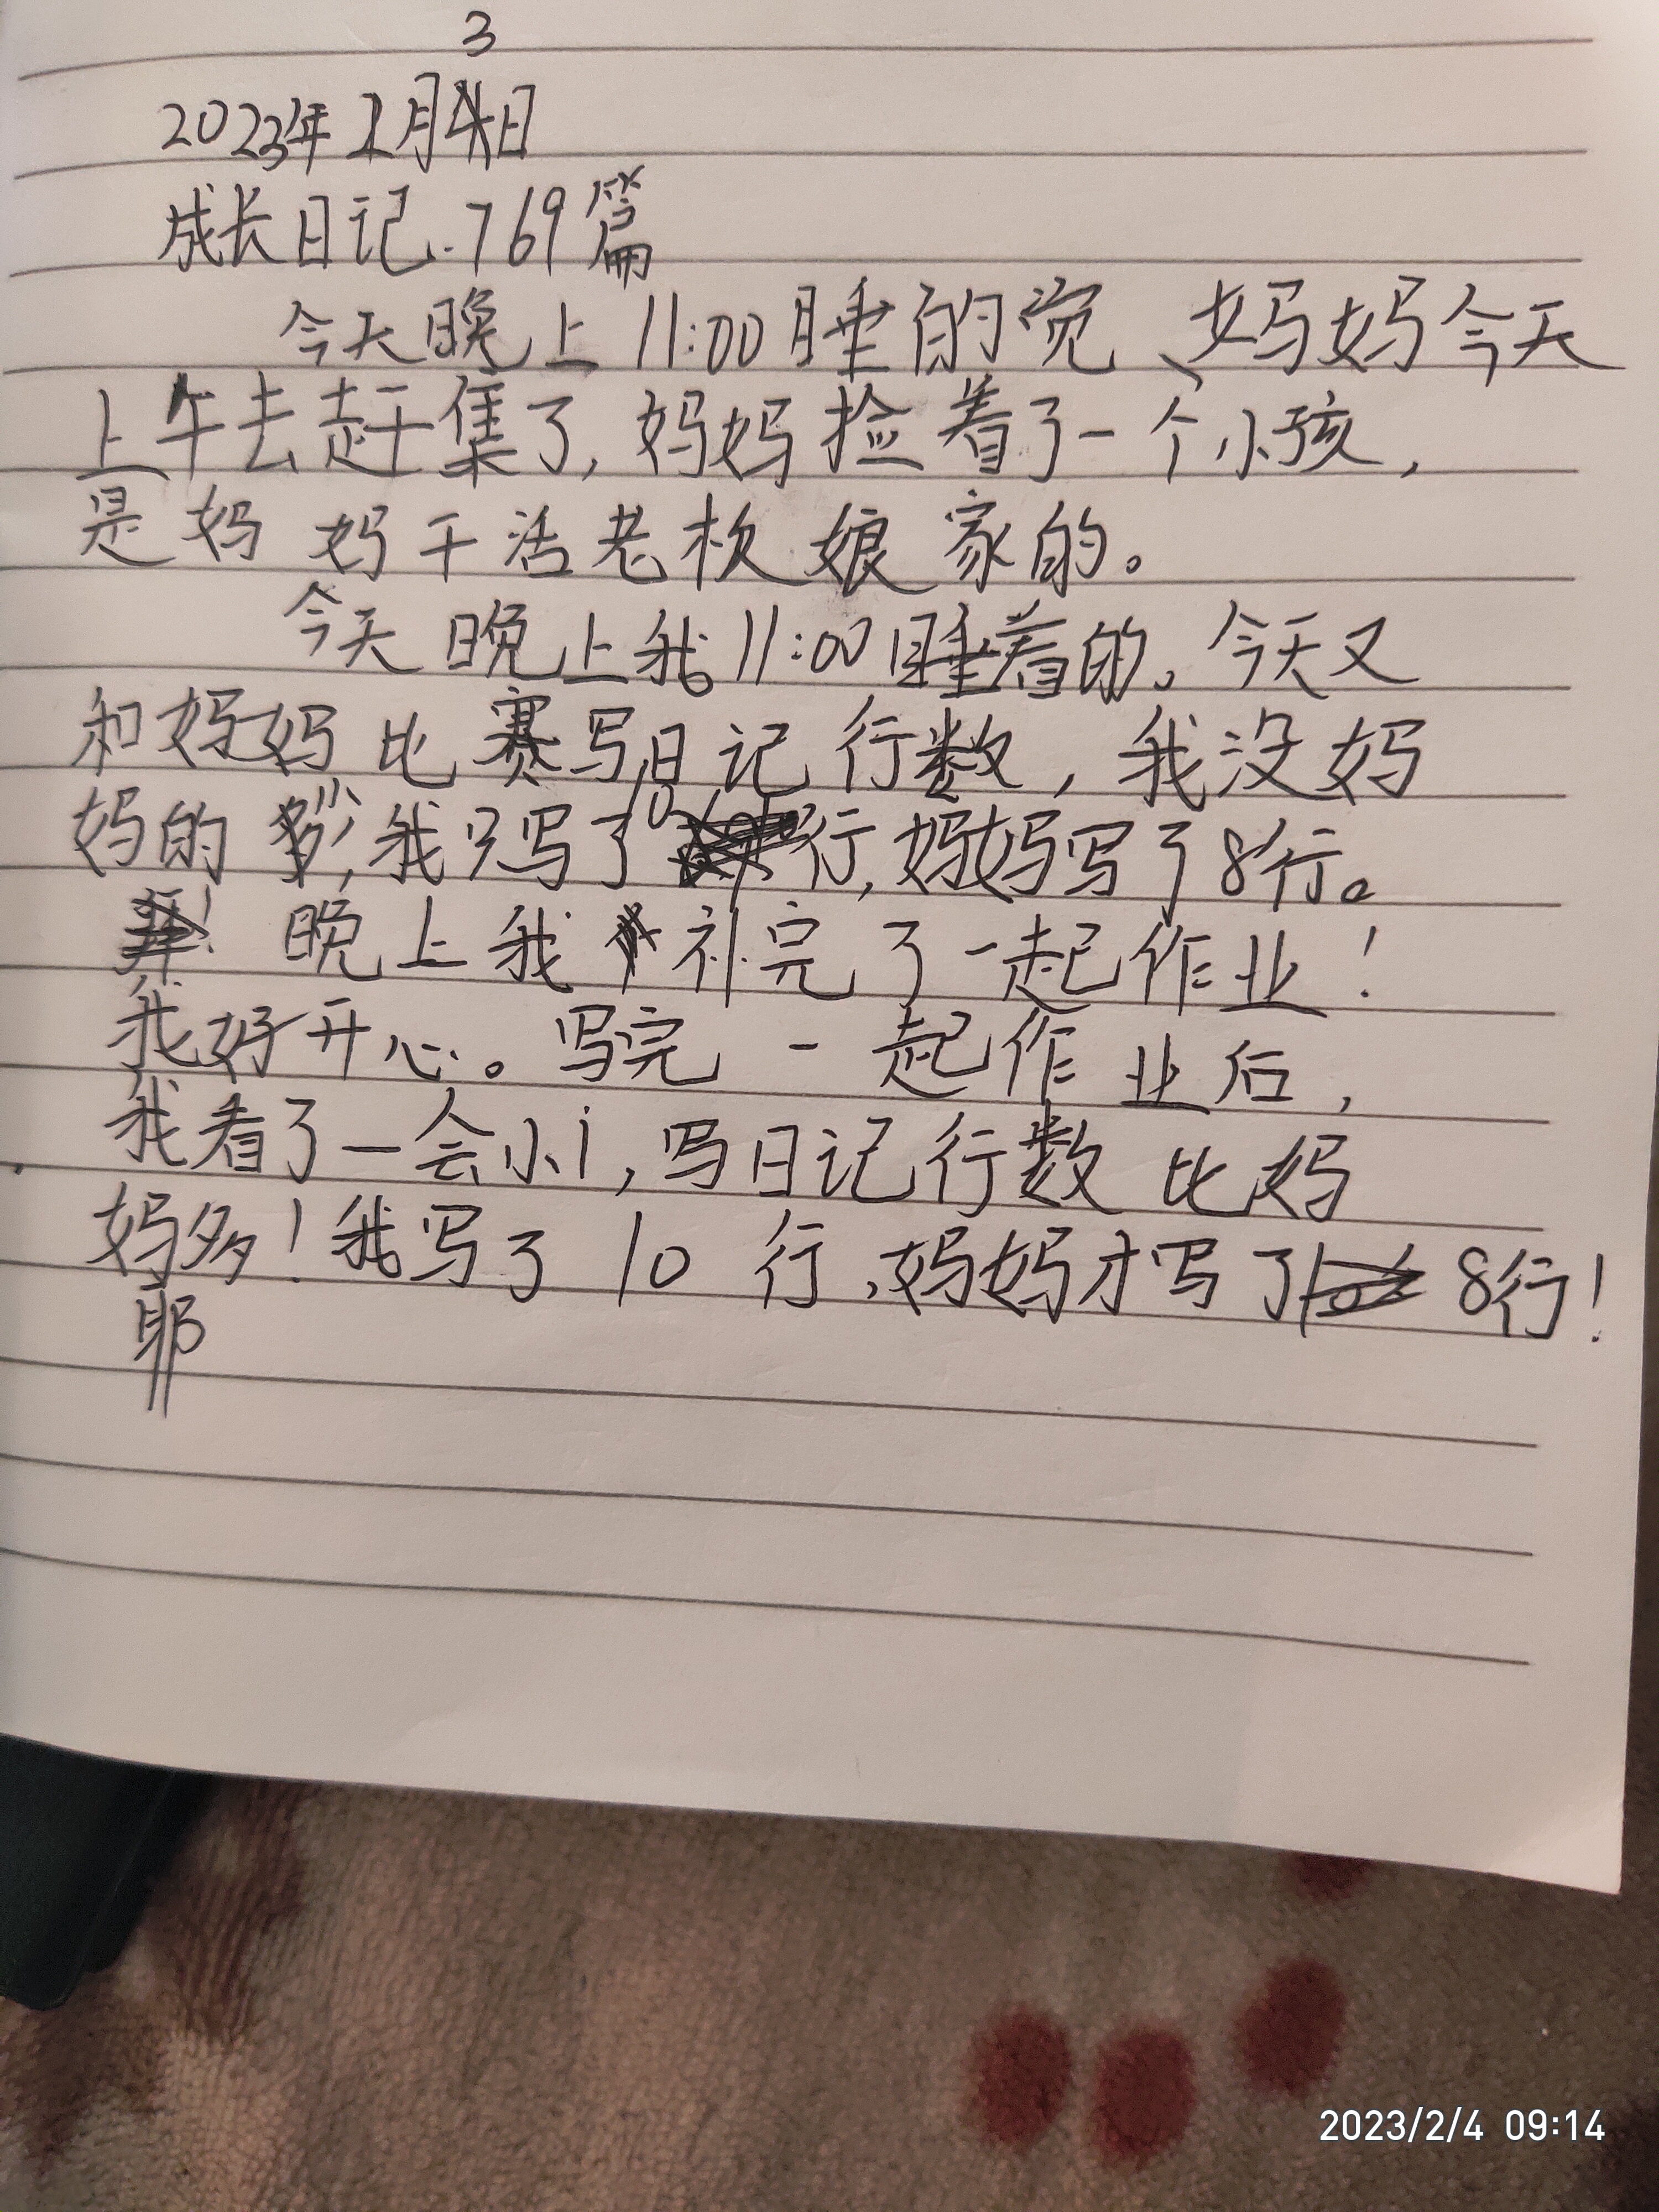 3
2023年2月4日
成长日记.769篇
今天晚上11:00睡的觉、妈妈今天
上午去赶集了,妈妈捡着了一个小孩,
是妈妈干活老板娘家的。
今天晚上我11:00睡着的。今天又
和妈妈比赛写日记行数,我没妈
妈的少,我只写了10行,妈妈写了8行。
晚上我补完了一起作业!
我好开心。写完一起作业后,
我看了一会小i,写日记行数比妈
妈多!我写了10行、妈妈才写了8行!
耶
2023/2/4 09:14